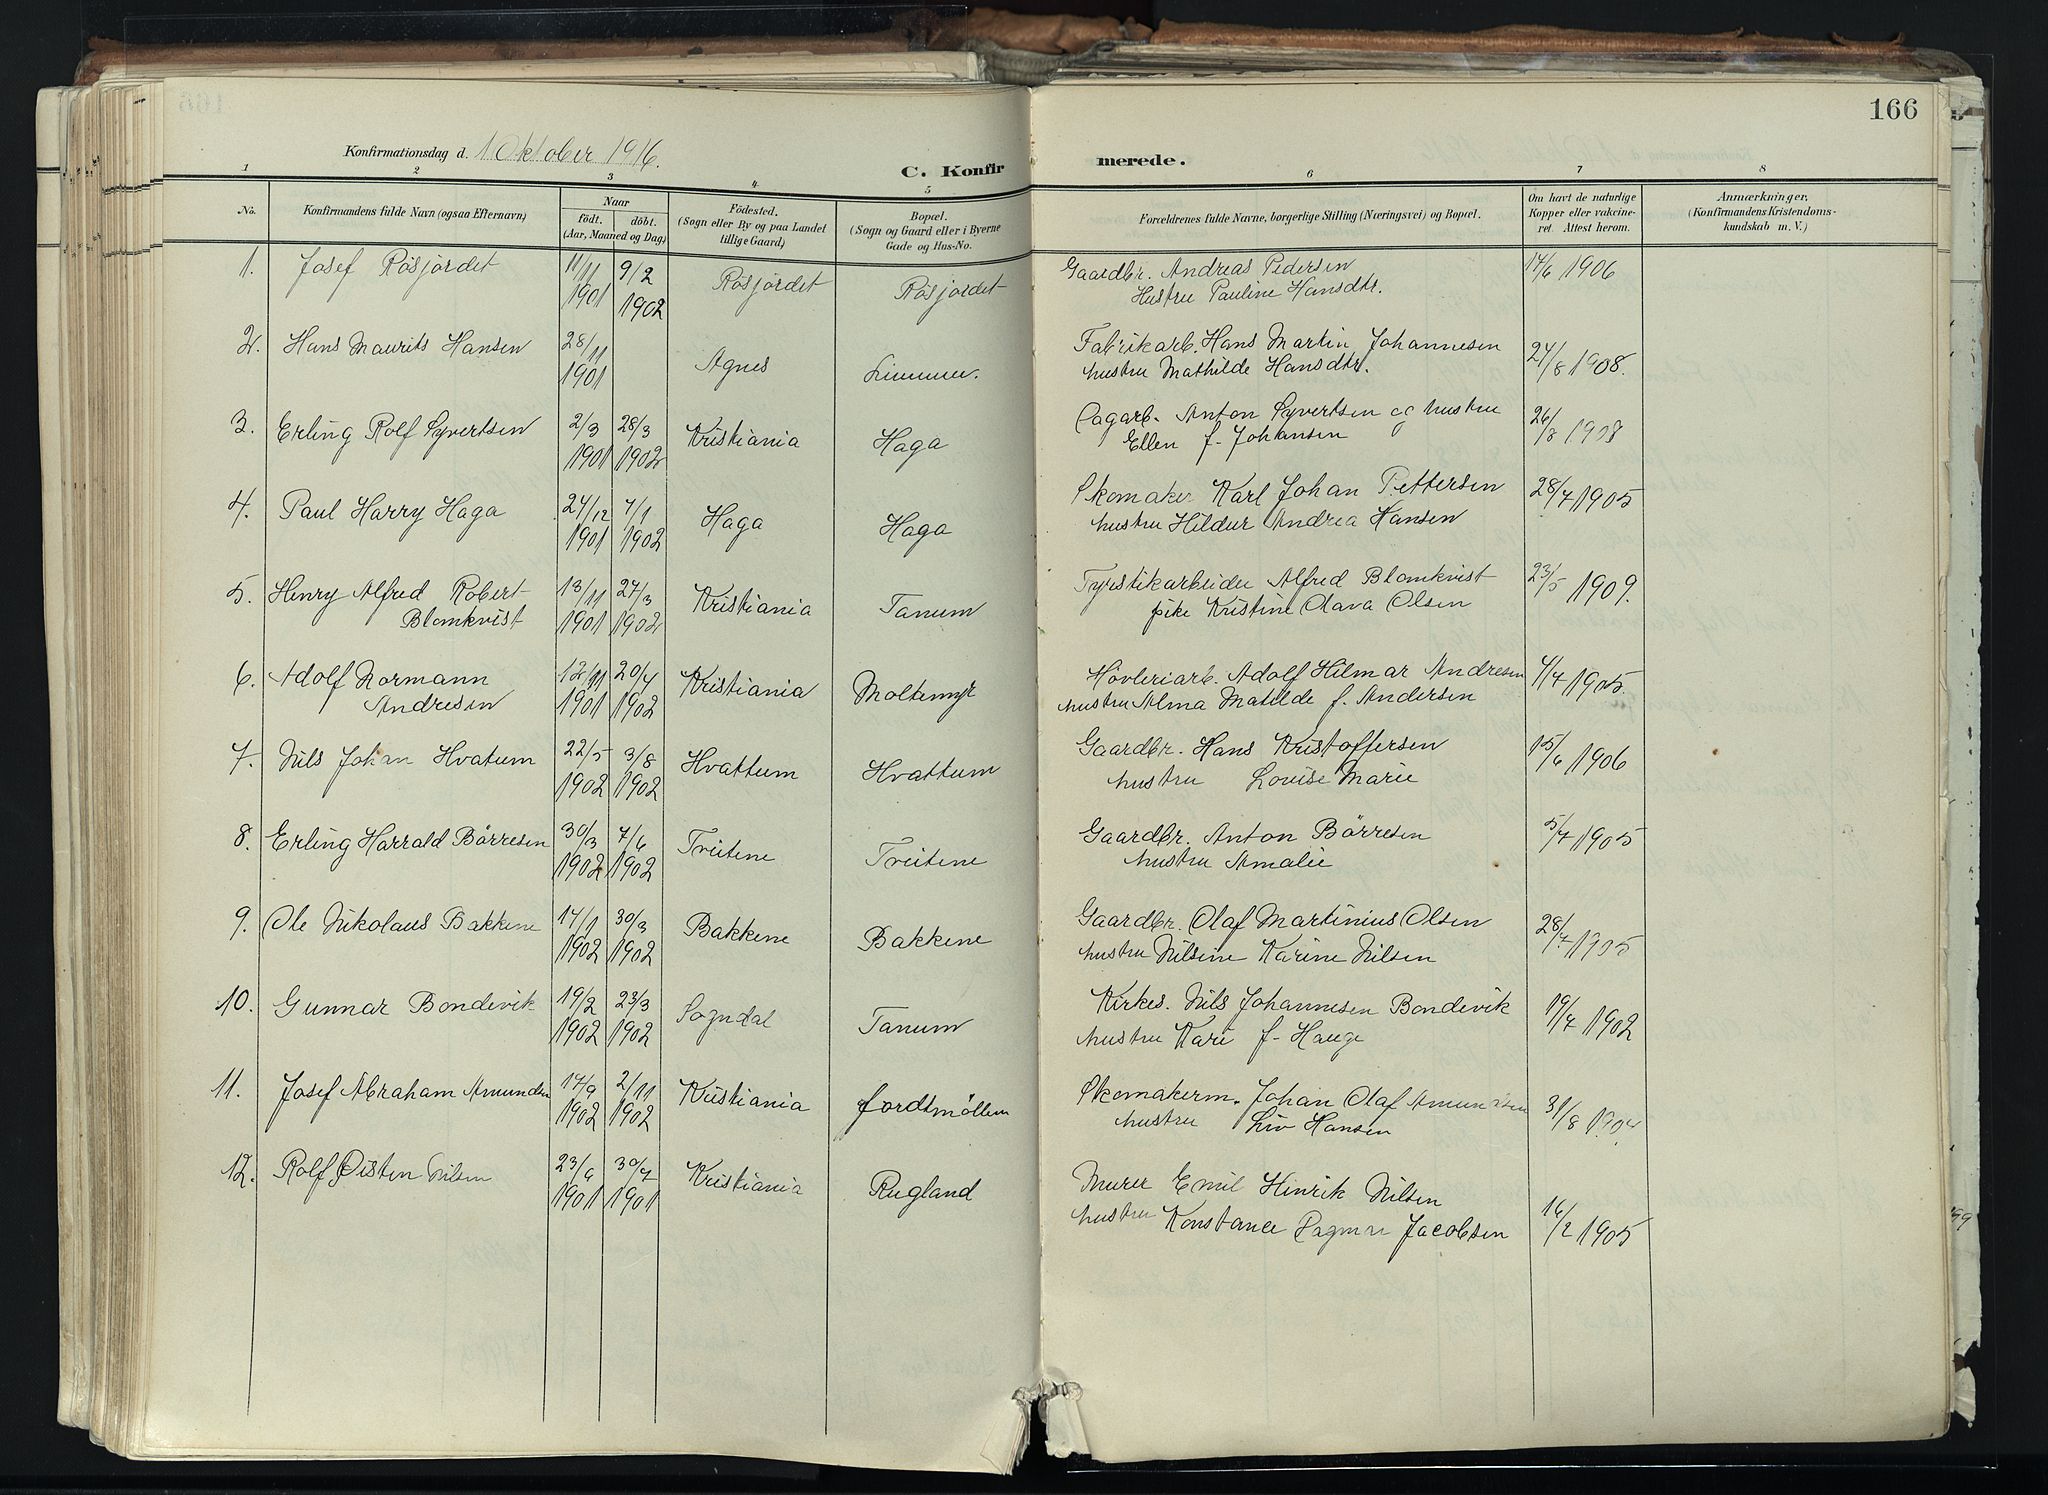 166
Konfirmationsdag d. 1 Oktober 1916.
C. Konfirmerede.
1 2 3 4 5 6 7 8
No.
Konfirmandens fulde Navn (ogsaa Efternavn)
Naar
födt. döbt.
(Aar, Maaned og Dag)
Födested.
(Sogn eller By og paa Landet
tillige Gaard)
Bopæl.
(Sogn og Gaard eller i Byerne
Gade og Hus-No.
Forældrenes fulde Navne, borgerlige Stilling (Næringsvei) og Bopæl.
Om havt de naturlige
Kopper eller vakcine-
ret. Attest herom.
Anmærkninger,
(Konfirmandens Kristendoms-
kundskab m. V.)
1. Josef Røsjordet 11/11 1901 9/2 1902 Røsjordet Røsjordet Gaardbr. Andreas Pedersen
Hustru Pauline Hansdtr. 14/6 1906
2. Hans Maurits Hansen 28/11 1901 Agnes Limmer. Fabrikarb. Hans Martin Johannesen
hustru Mathilde Hansdtr. 24/8 1908.
3. Erling Rolf Syvertsen 2/3 1901 28/3 1902 Kristiania Haga Anton Syvertsen og hustru
Ellen f. Johansen 26/8 1908
4. Paul Harry Haga 24/12 1901 7/1 1902 Haga Haga Skomaker Karl Johan Pettersen
hustru Hildur Andrea Hansen 28/4 1905
5. Henry Alfred Robert
Blomkvist 13/11 1901 24/3 1902 Kristiania Tanum Fyrstikarbeider Alfred Blomkvist
pike Kristine Olava Olsen 23/5 1909.
6. Adolf Normann
Andresen 12/11 1901 20/4 1902 Kristiania Moltemyr Høvleriarb. Adolf Hilmar Andresen
hustru Alma Matilde f. Andersen 4/4 1905.
7. Nils Johan Hvatum 22/5 1902 3/8 1902 Hvattum Hvattum Gaardbr. Hans Kristoffersen
hustru Lovise Marie 15/6 1906
8. Erling Harrald Børresen 30/3 1902 7/6 1902 Treitene Treitene Gaardbr. Anton Børresen
hustru Amalie 5/4 1905
9. Ole Nikolaus Bakkene 14/1 1902 30/3 1902 Bakkene Bakkene Gaardbr. Olaf Martinius Olsen
hustru Nilsine Karine Nilsen 28/4 1905
10. Gunnar Bondevik 19/2 1902 23/3 1902 Sogndal Tanum Kirkes. Nils Johannesen Bondevik
hustru Kari f. Hauge 19/4 1902
11. Josef Abraham Amundsen 14/9 1902 2/11 1902 Kristiania Jordtmøllem Skomakerm. Johan Olaf Amundsen
hustru Liv Hansen 31/8 1904.
12. Rolf Øisten Nilsen 23/6 1901 30/7 1901 Kristiania Rugland Murer Emil Hinrik Nilsen
hustru Konstance Dagmar Jacobsen 16/2 1905